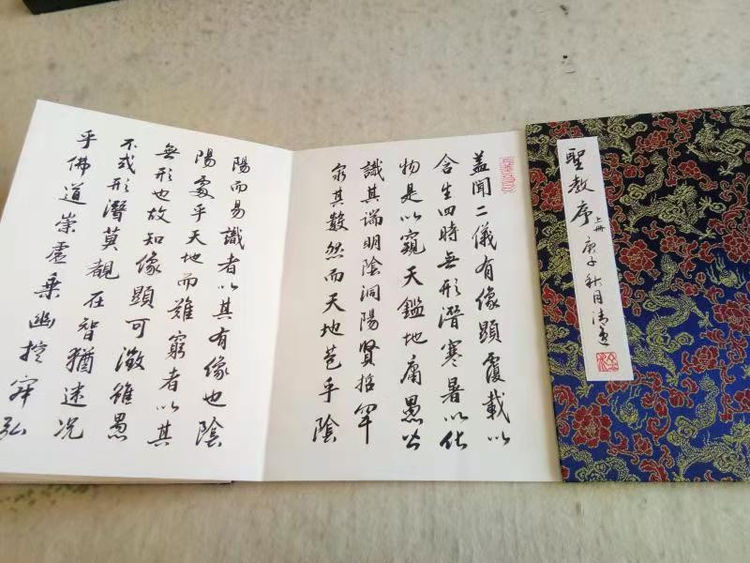 聖教序
上冊
庚子秋月清
蓋聞二儀有像顯覆載以
含生四時無形潛寒暑以化
物是以窺天鑑地庸愚皆
識其端明陰洞陽賢哲罕
窮其數然而天地苞乎陰
陽而易識者以其有像也陰
陽處乎天地而難窮者以其
無形也故知像顯可徵雖愚
不惑形潛莫覩在智猶迷況
乎佛道崇虛乘幽控寂弘